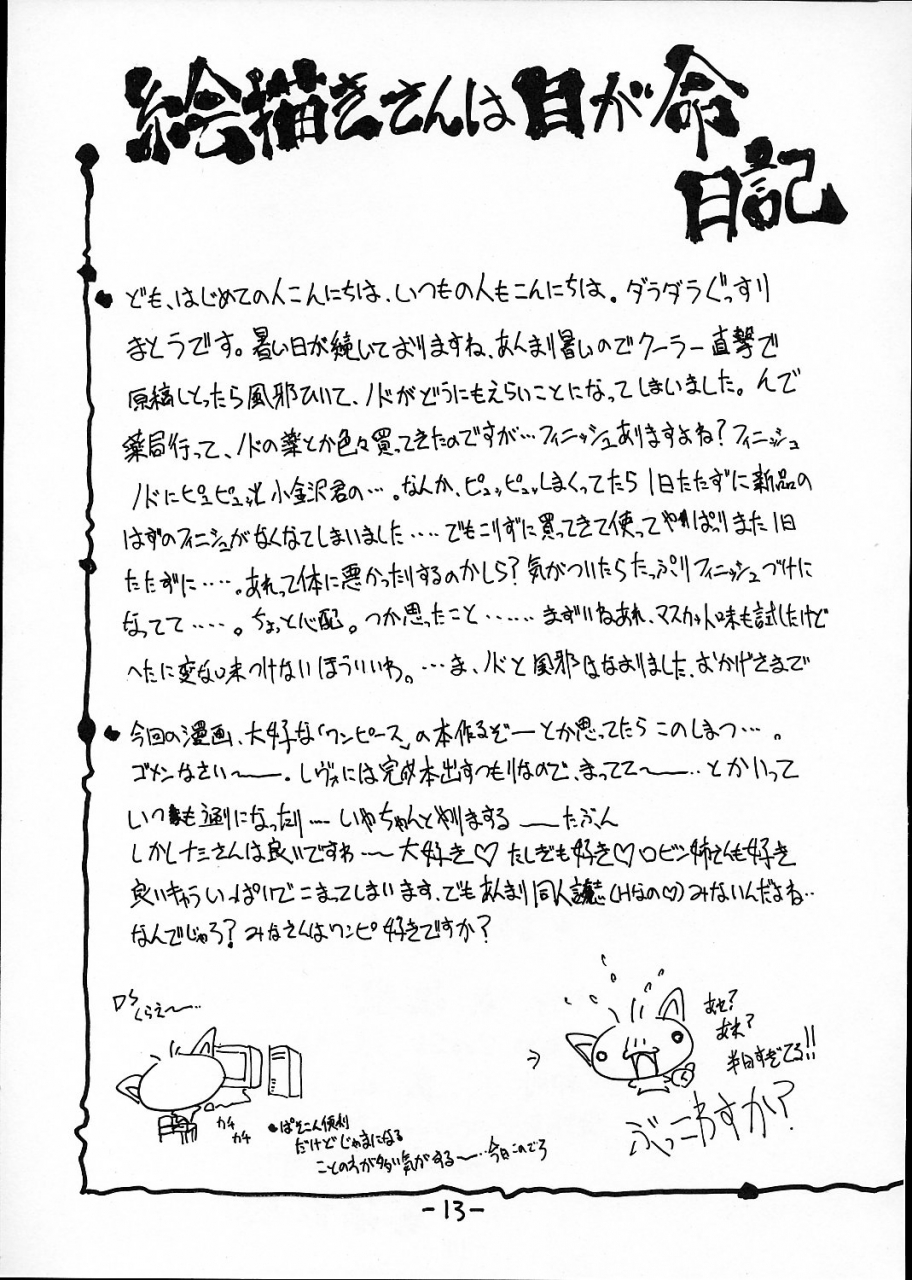 絵描きさんは目が命
日記
ども、はじめての人こんにちは、いつもの人もこんにちは。ダラダラぐっすり
まとうです。暑い日が続いておりますね、あんまり暑いのでクーラー直撃で
原稿しとったら風邪ひいて、ノドがどうにもえらいことになってしまいました。んで
薬局行って、ノドの薬とか色々買ってきたのですが…フィニッシュありますよね?フィニッシュ
ノドにピュピュッと小金沢君の…。なんか、ピュッピュッしまくってたら1日たたずに新品の
はずのフィニシュがなくなてしまいました‥‥でもこりずに買ってきて使ってやっぱりまた1日
たたずに‥‥。あれって体に悪かったりするのかしら?気がついたらたっぷりフィニッシュづけに
なってて‥‥。ちょっと心配。つか思ったこと‥‥‥まずいねあれ、マスカット味も試したけど
へたに変な味つけないほういいわ。…ま、ノドと風邪はなおりました、おかげさまで
今回の漫画、大好な「ワンピース」の本作るぞーとか思ってたらこのしまつ…。
ゴメンなさい〜。レヴォには完成本出すつもりなので、まってて〜‥とかいって
いつも通りになったり…いやちゃんとやりまする――たぶん
しかしナミさんは良いですわ〜大好き♡たしぎも好き♡ロビン姉さんも好き
良いキャラいっぱいでこまってしまいます、でもあんまり同人誌(Hなの♡)みないんだよね‥
なんでじゃろ?みなさんはワンピ好きですか?
くらえ〜…
カチ
カチ
ぱそこん便利
だけどじゃまになる
ことの方が多い気がする〜…今日このごろ
あせ?
あれ?
半日すぎてる!!
ぶっこわすか?
-13-